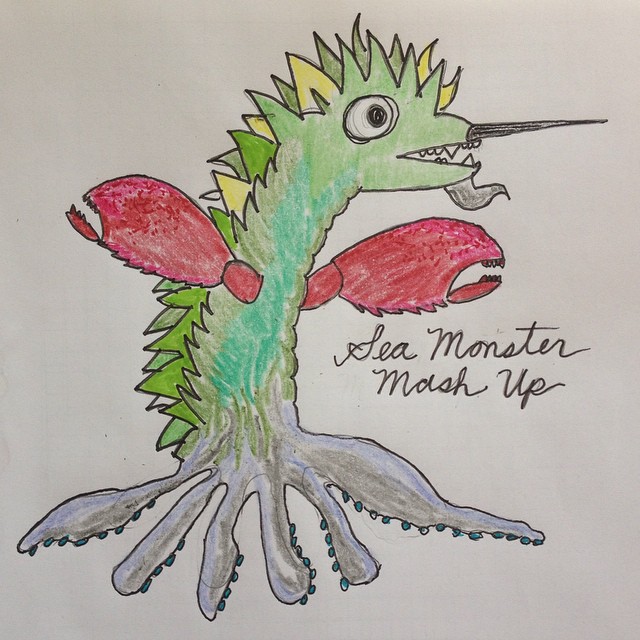 Sea Monster
Mash Up